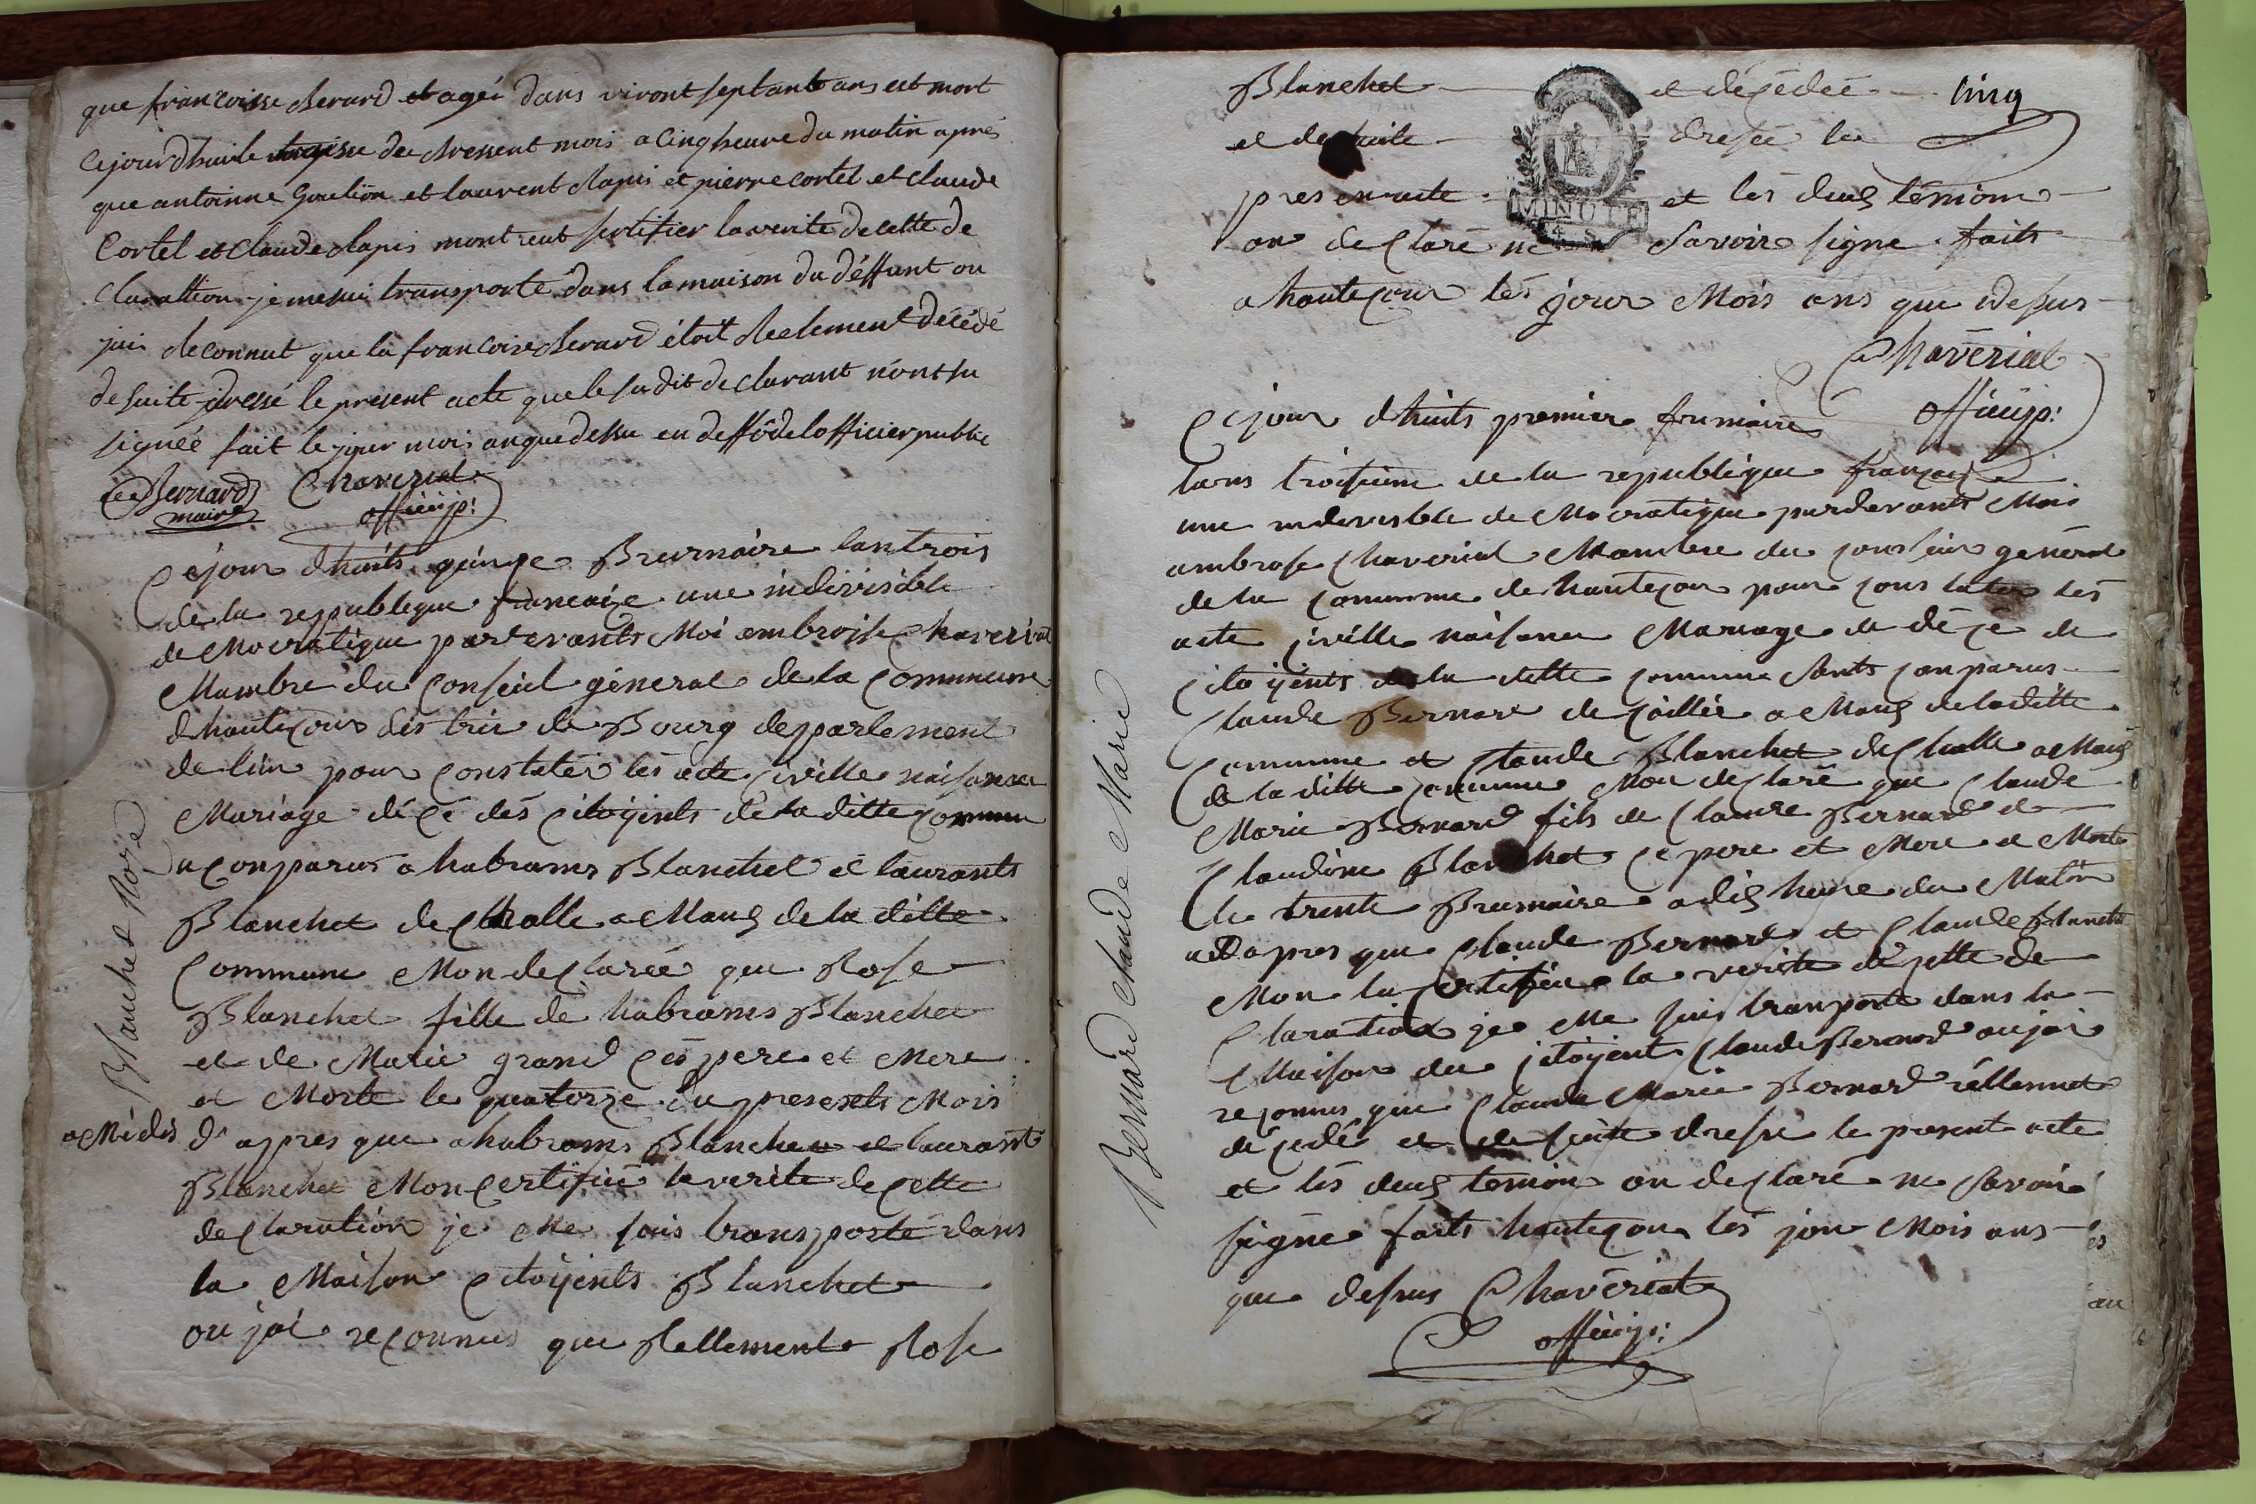 que francoisse Berard et agéé dans viront septante ans est mort
cejourdhuile treisse de present mois a cinq heure du matin aprés
que antoinne Goulion et laurent clapis et pierre cortel et claude
Cortel et Claude clapis mont reut sertifier la verite de cette de
clarattion je me sui transporté dans la maison du déffunt ou
jai deconnut que la francoise berard étoit Reelement décédé
de suite dressé le present acte que le sudit declarant nónt su
signée fait le jour mois an que dessu en deffô de lofficier public
Bernard Chaverial
maire officiép:
Blanchet Roze
Cejour dhuits quinze Brumaire lan trois
de la republique francaize une indivisible
de Mocratique pardevants Moi embroise Chaverial
Mambre du Conseil géneral de la Commune
dhauteçour dis tric de Bourg departement
de lain pour Constater les acte civille naisance
Mariage décé des Citoÿents de la ditte Commune
a Conparus a habrams Blanchet et laurants
Blanchet de Challe a Maus de la ditte
Commune Mon declareé que Rose
Blanchet fille de habrams Blanchet
et de Marie grand cés pere et Mere
et Morte le quatorze du presents Mois
a Midis d'appres que ahabrams Blanchet et laurant
Blanchet Mon certifiué la verite de cette
declaration je Me suis transporté dans
la Maison Citoÿents Blanchet
ou jai reconnus que Rellement Rose
Blanchet et décédeé cinq
et de suite dreseé le
present acte et les deus témoin
MINUTE
on declaré ne savoir signe faits
a hauteçour les jour Mois ans que desus
Chavérial
officiép:
Bernard claude Marie
Cejour dhuits premier frumaire
lans troisieme de la republique français
une indevisble de Mocratique pardevants Moi
ambrose Chaverial Mambre du conseil général
de la Commune de hauteçour pour cons tater les
acte civille naisance Mariage et décé de
Citoÿents de la ditte commune sonts conparus
Claude Bernard de Coillié a Maus de la ditte
Commune et Claude Blanchet de Challe a Maus
de la ditte commune Mon declaré que Claude
Marie Bernard fils de Claude Bernard et
Claudine Blanchet ce pere et Mere et Morte
le trente Brumaire a dis heure du Matin
apres que Claude Bernard et Claude Blanchet
Mon certifiée la verite de cette de
Claration je Me suis tranporté dans la
Maison du citoÿent Claude Bernard ou jai
reconnus que Claude Marie Bernard réllemnet
décedé et de suite dresé le present acte
et lés deus temion on declaré ne savoir
signé faits hauteçour lés jour Mois ans
que desus Chavérial
officiép: